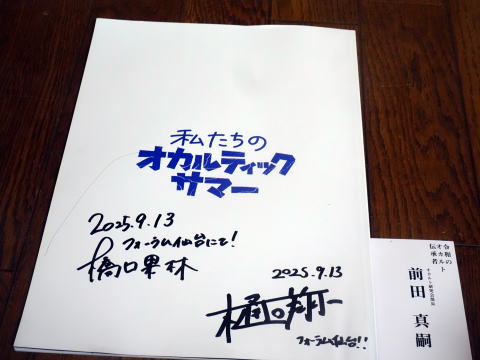 私たちの
オカルティック
サマー
2025.9.13
フォーラム仙台にて!
橋口果林
2025.9.13
樋口翔一
フォーラム仙台!!
令和の
オカルト
伝承者
オカルト研究公務局
前田 真嗣